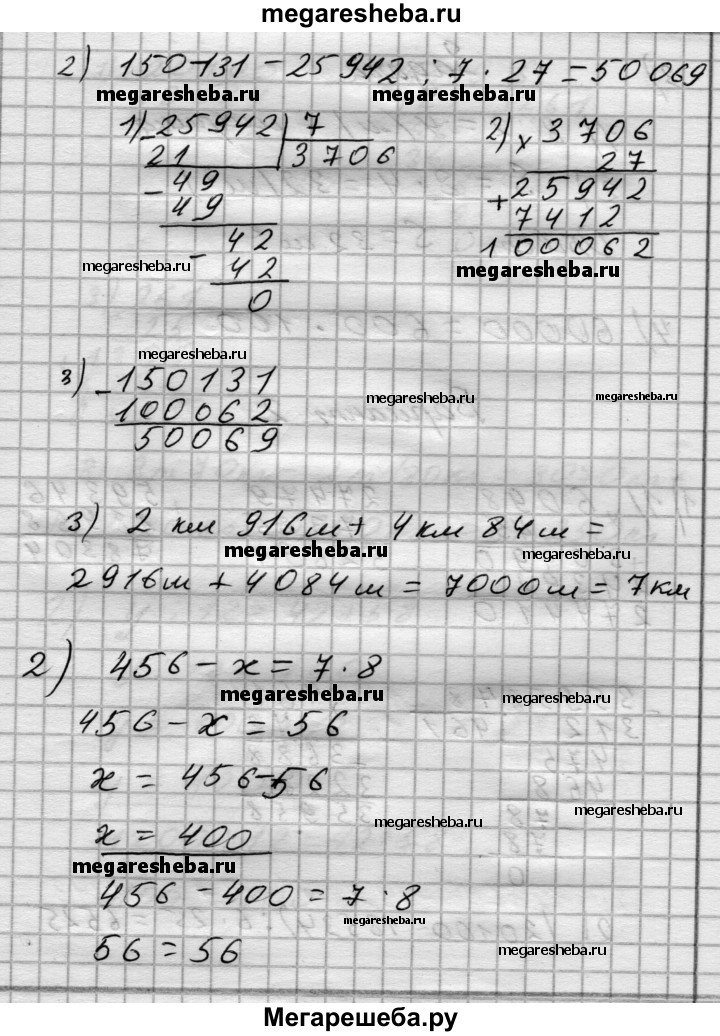 megaresheba.ru
2) 150131 - 25942 : 7 · 27 = 50069
megaresheba.ru megaresheba.ru
1) - 25942 | 7
21 3706
- 49
49
42
- 42
0
2) × 3706
27
+ 25942
7412
100062
megaresheba.ru megaresheba.ru
megaresheba.ru
3) - 150131
100062
50069
megaresheba.ru megaresheba.ru
3) 2 км 916 м + 4 км 84 м =
megaresheba.ru megaresheba.ru
2916 м + 4084 м = 7000 м = 7 км
2) 456 - x = 7 · 8
megaresheba.ru megaresheba.ru
456 - x = 56
x = 456 - 56
x = 400
megaresheba.ru megaresheba.ru
megaresheba.ru
456 - 400 = 7 · 8
megaresheba.ru
56 = 56
megaresheba.ru
Мегарешеба.ру